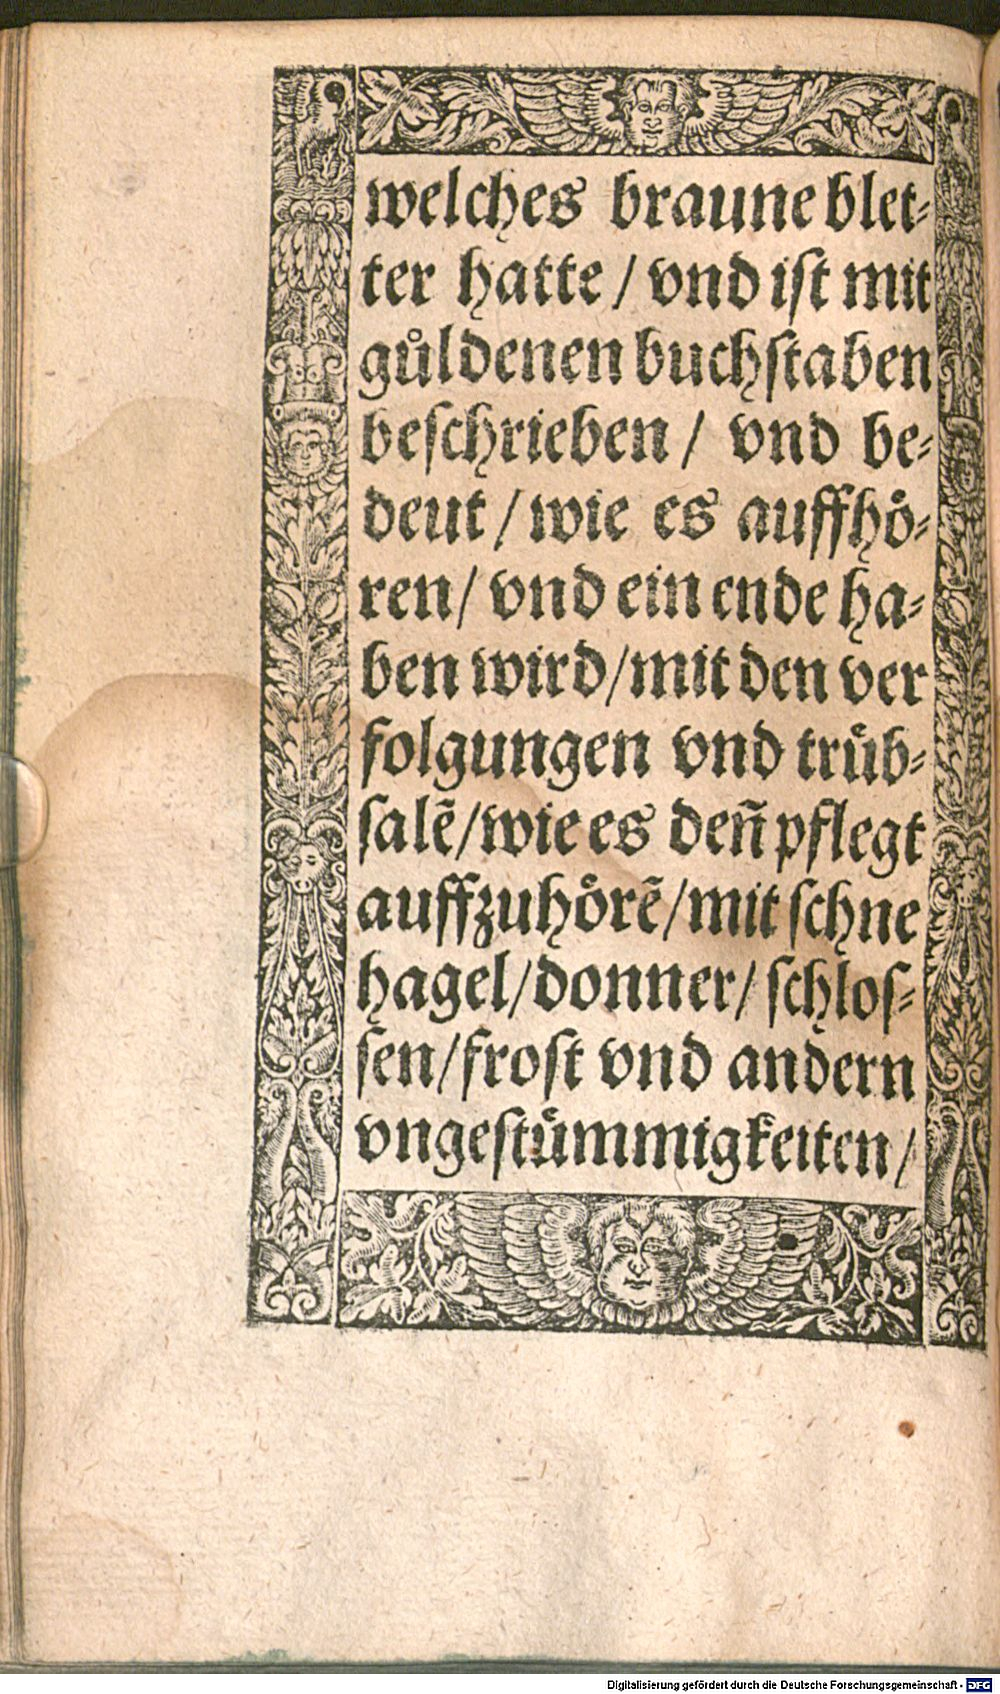 welches braune blet⸗
ter hatte / vnd ist mit
guͤldenen buchstaben
beschrieben / vnd be⸗
deut / wie es auffhoͤ⸗
ren / vnd ein ende ha⸗
ben wird / mit den ver
folgungen vnd truͤb⸗
salē / wie es deñ pflegt
auffzuhoͤrē / mit schne
hagel / donner / schlos⸗
sen / frost vnd andern
vngestuͤmmigkeiten /
Digitalisierung gefördert durch die Deutsche Forschungsgemeinschaft - DFG